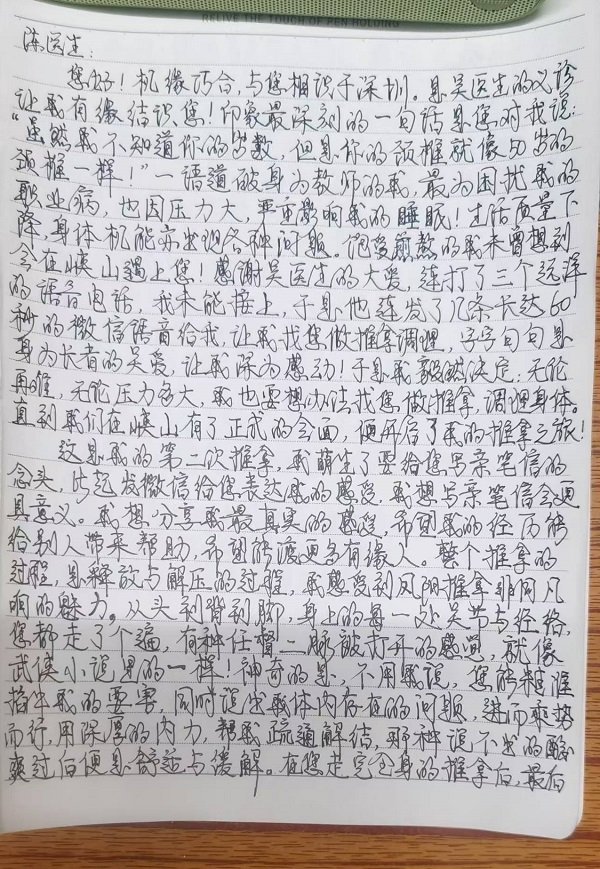 RELIVE THE TOUCH OF PEN HOLDING
陈医生：
您好！机缘巧合，与您相识于深圳。是吴医生的义诊
让我有缘结识您！印象最深刻的一句话是您对我说：
“虽然我不知道你的岁数，但是你的颈椎就像50岁的
颈椎一样！”一语道破身为教师的我，最为困扰我的
职业病，也因压力大，严重影响我的睡眠！生活质量下
降，身体机能亦出现各种问题。饱受煎熬的我未曾想到
会在峡山遇上您！感谢吴医生的大爱，连打了三个远洋
的语音电话，我未能接上，于是他连发了几条长达60
秒的微信语音给我，让我找您做推拿调理，字字句句是
身为长者的关爱，让我深为感动！于是我毅然决定：无论
再难，无论压力多大，我也要想办法找您做推拿，调理身体。
直到我们在峡山有了正式的会面，便开启了我的推拿之旅！
这是我的第二次推拿，我萌生了要给您写亲笔信的
念头，比起发微信给您表达我的感受，我想写亲笔信会更
具意义。我想分享我最真实的感受，希望我的经历能
给别人带来帮助，希望能渡更多有缘人。整个推拿的
过程，是释放与解压的过程，我感受到风阳推拿非同凡
响的魅力。从头到背到脚，身上的每一处关节与经络，
您都走了个遍，有种任督二脉被打开的感觉，就像
武侠小说里的一样！神奇的是，不用我说，您能精准
掐住我的要害，同时说出我体内存在的问题，进而乘势
而行，用深厚的内力，帮我疏通解结，那种说不出的酸
爽过后便是舒适与缓解。在您走完全身的推拿后，最后